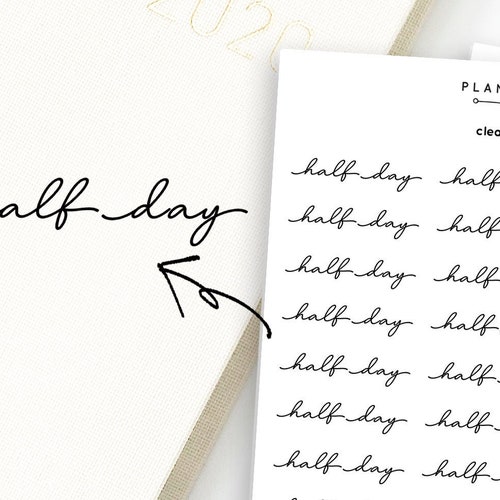 2020
alf day
PLAN
clea
half day half
half day half
half day half
half day half
half day half
half day half
half day half